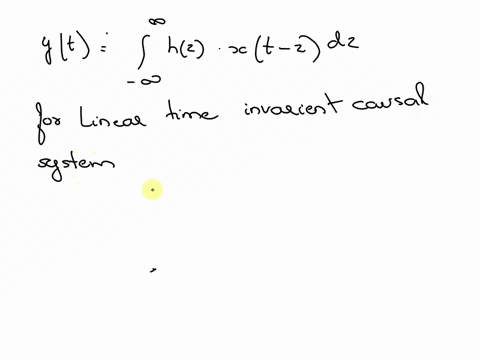 y(t) = ∫_{-∞}^{∞} h(z) · x(t-z) dz
for Linear time invarient causal
system